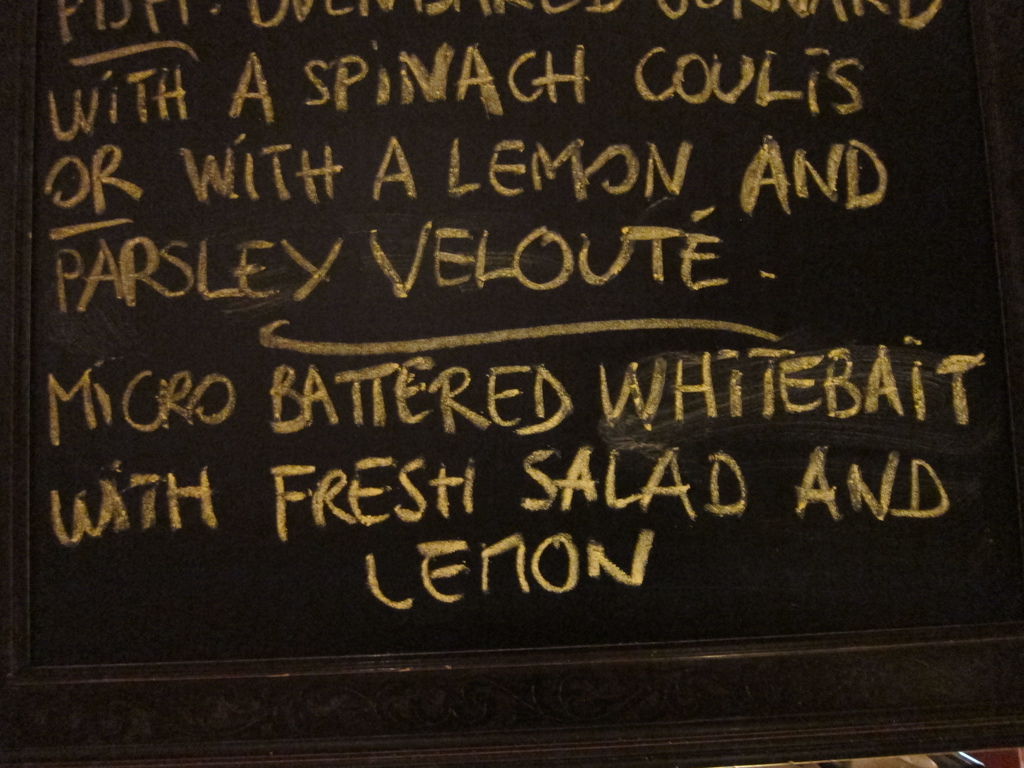 FISH: OVEN BAKED GURNARD
WITH A SPINACH COULIS
OR WITH A LEMON AND
PARSLEY VELOUTÉ.
MICRO BATTERED WHITEBAIT
WITH FRESH SALAD AND
LEMON